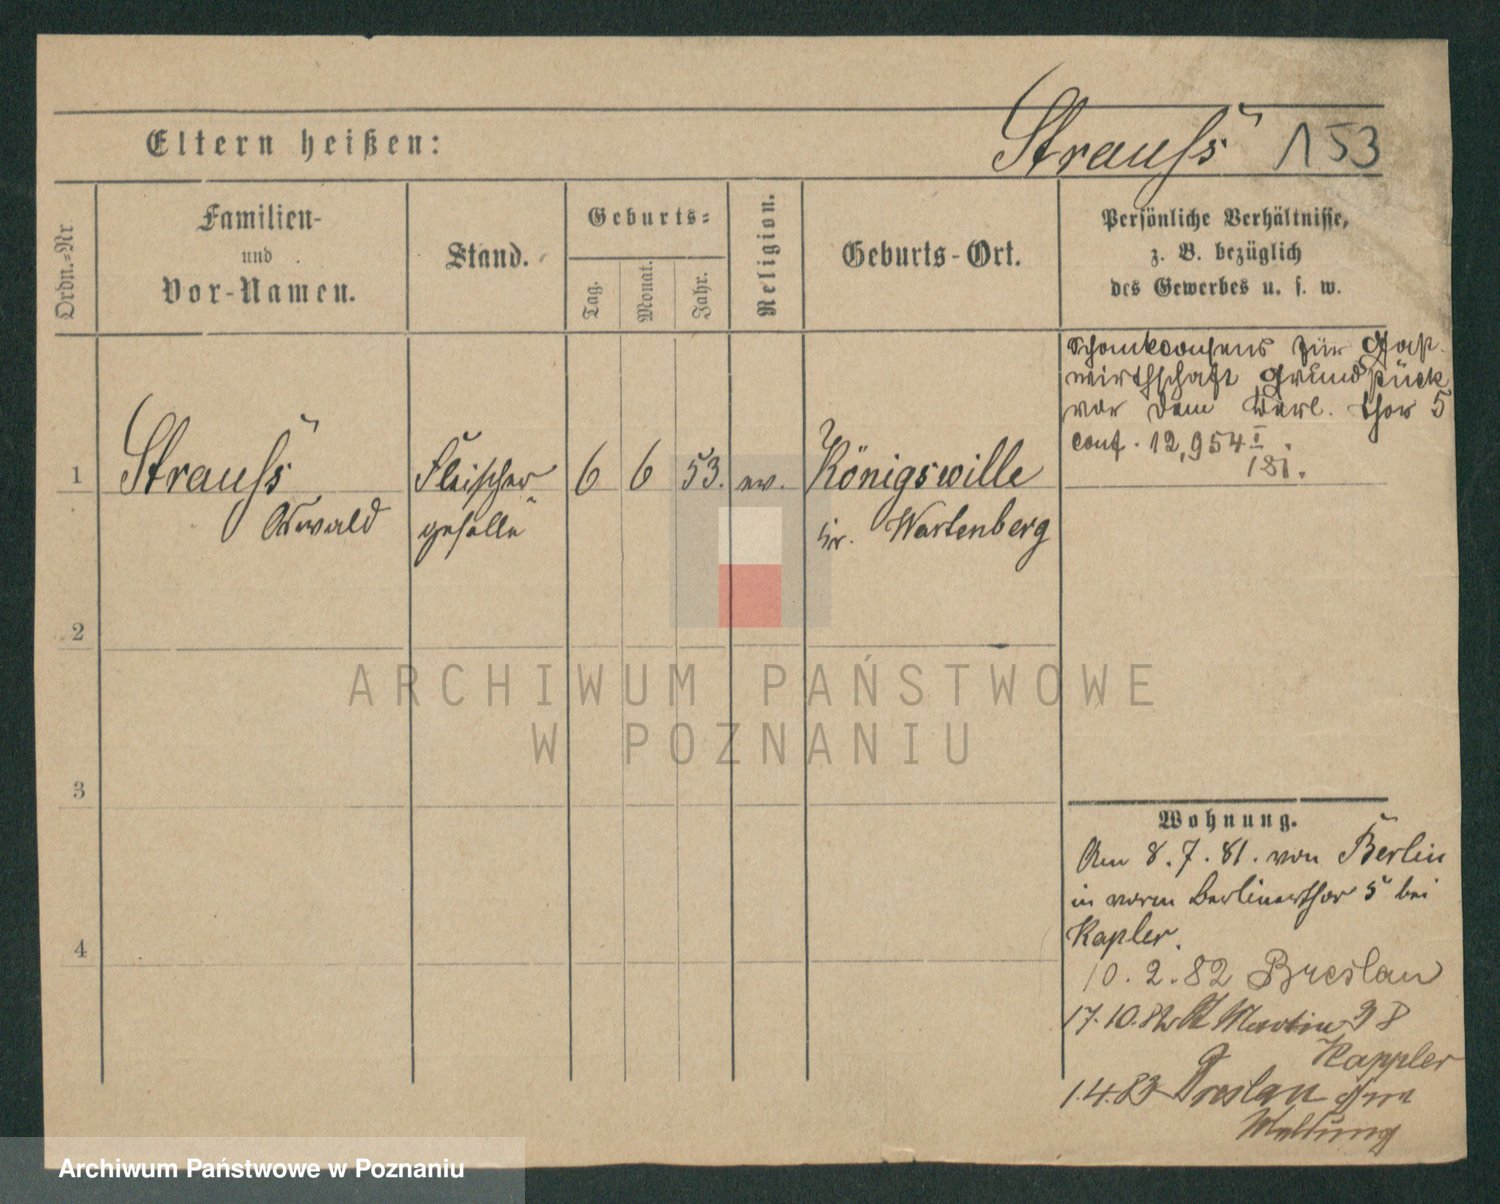 Eltern heißen:
Strauss 153
Ordn.-Nr
Familien-
und
Vor-Namen.
Stand.
Geburts-
Tag.
Monat.
Jahr.
Religion.
Geburts-Ort.
Persönliche Verhältnisse,
z. B. bezüglich
des Gewerbes u. s. w.
1
Strauss
Oswald
Fleischer
geselle
6 6 53. ev.
Königswille
Kr. Wartenberg
Schankconsens für Gast-
wirthschaft Grundstück
vor dem Berl. Thor 5
conf. 12,954 I
181.
2
3
4
Wohnung.
Am 8.7.81. von Berlin
in vorm Berlinerthor 5 bei
Kapler.
10.2.82 Breslau
17.10.82 St Martin 38
Kappler
1.4.83 Breslau ohne
Meldung
ARCHIWUM PAŃSTWOWE
W POZNANIU
Archiwum Państwowe w Poznaniu